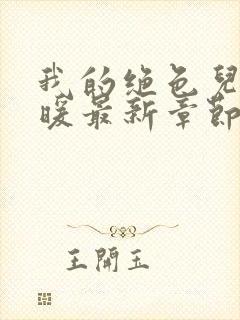 我的绝色兒
暖最新章節
王開玉